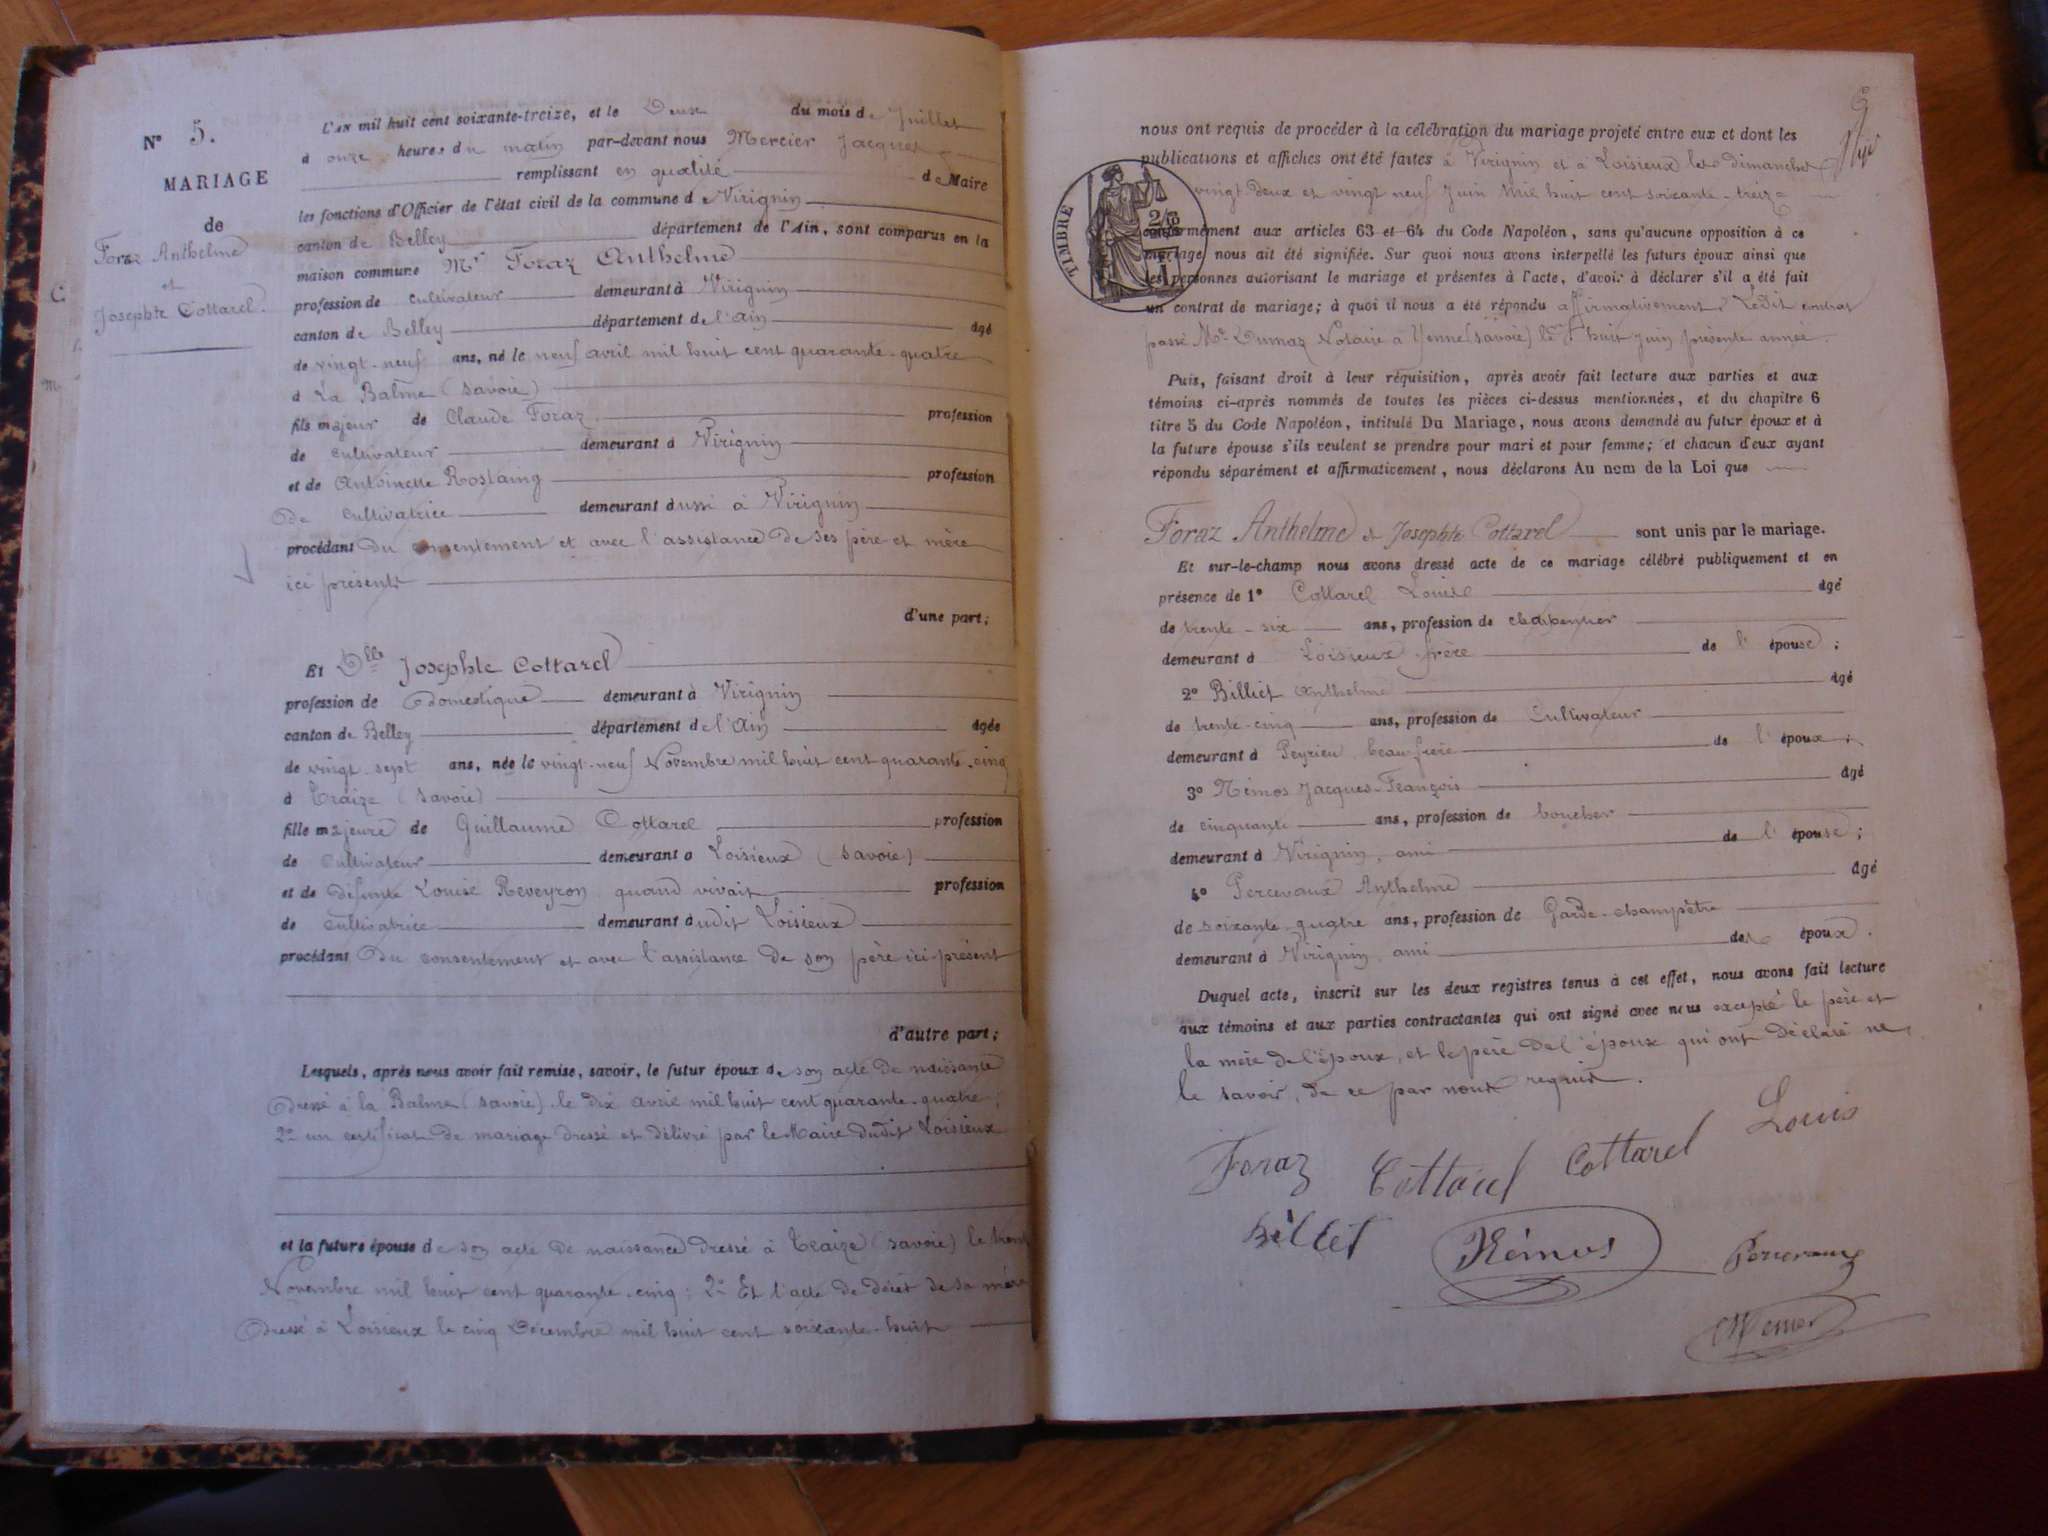 N° 5.
MARIAGE
de
Foraz Anthelme
et
Josephte Cottarel.
L'AN mil huit cent soixante-treize, et le Deux du mois de Juillet
à onze heures du matin par-devant nous Mercier Jacques
remplissant en qualité de Maire
les fonctions d'Officier de l'état civil de la commune de Virignin
canton de Belley département de l'Ain, sont comparus en la
maison commune Mr Foraz Anthelme
profession de cultivateur demeurant à Virignin
canton de Belley département de l'Ain âgé
de vingt-neuf ans, né le neuf avril mil huit cent quarante-quatre
à La Balme (Savoie)
fils majeur de Claude Foraz profession
de cultivateur demeurant à Virignin
et de Antoinette Rostaing profession
de cultivatrice demeurant aussi à Virignin
procédant du consentement et avec l'assistance de ses père et mère
ici présents
d'une part;
Et Dlle Josephte Cottarel
profession de Domestique demeurant à Virignin
canton de Belley département de l'Ain âgée
de vingt-sept ans, née le vingt-neuf Novembre mil huit cent quarante-cinq
à Traize (Savoie)
fille majeure de Guillaume Cottarel profession
de cultivateur demeurant à Loisieux (Savoie)
et de défunte Louise Reveyron quand vivait profession
de cultivatrice demeurant audit Loisieux
procédant Du consentement et avec l'assistance de son père ici présent
d'autre part;
Lesquels, après nous avoir fait remise, savoir, le futur époux de son acte de naissance
dressé à la Balme (Savoie) le dix avril mil huit cent quarante-quatre;
2° un certificat de mariage dressé et délivré par le Maire dudit Loisieux
et la future épouse de son acte de naissance dressé à Traize (Savoie) le trente
Novembre mil huit cent quarante-cinq: 2° Et l'acte de décès de sa mère
dressé à Loisieux le cinq Décembre mil huit cent soixante-huit
nous ont requis de procéder à la célébration du mariage projeté entre eux et dont les
publications et affiches ont été faites à Virignin et à Loisieux les dimanches
vingt deux et vingt neuf Juin mil huit cent soixante-treize
conformément aux articles 63 et 64 du Code Napoléon, sans qu'aucune opposition à ce
mariage nous ait été signifiée. Sur quoi nous avons interpellé les futurs époux ainsi que
les personnes autorisant le mariage et présentes à l'acte, d'avoir à déclarer s'il a été fait
un contrat de mariage; à quoi il nous a été répondu affirmativement. Ledit contrat
passé Me Dumaz Notaire à Yenne (Savoie) le huit juin présente année.
TIMBRE
Puis, faisant droit à leur réquisition, après avoir fait lecture aux parties et aux
témoins ci-après nommés de toutes les pièces ci-dessus mentionnées, et du chapitre 6
titre 5 du Code Napoléon, intitulé Du Mariage, nous avons demandé au futur époux et à
la future épouse s'ils veulent se prendre pour mari et pour femme; et chacun d'eux ayant
répondu séparément et affirmativement, nous déclarons Au nom de la Loi que
Foraz Anthelme et Josephte Cottarel sont unis par le mariage.
Et sur-le-champ nous avons dressé acte de ce mariage célébré publiquement et en
présence de 1° Cottarel Louis âgé
de trente-six ans, profession de charpentier
demeurant à Loisieux, frère de l'épouse;
2° Billiet Anthelme âgé
de trente-cinq ans, profession de Cultivateur
demeurant à Peyrieu beau-frère de l'époux;
3° Rémos Jacques-François âgé
de cinquante ans, profession de boucher
demeurant à Virignin, ami de l'épouse;
4° Percevaux Anthelme âgé
de soixante-quatre ans, profession de Garde-champêtre
demeurant à Virignin, ami de l'époux.
Duquel acte, inscrit sur les deux registres tenus à cet effet, nous avons fait lecture
aux témoins et aux parties contractantes qui ont signé avec nous excepté le père et
la mère de l'époux, et le père de l'épouse qui ont déclaré ne
le savoir, de ce par nous requis.
Foraz Cottarel Cottarel Louis
Billiet Rémos Percevaux
Mercier